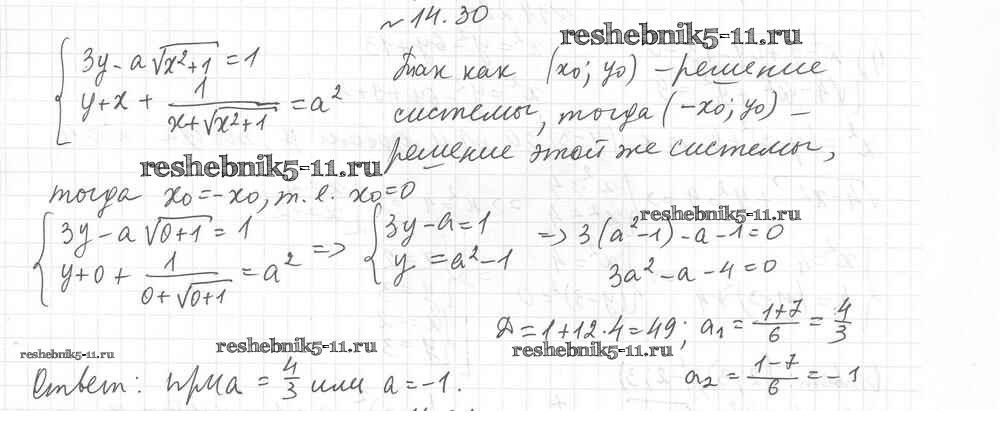 № 14.30
reshebnik5-11.ru
{ 3y - a√(x²+1) = 1
{ y + x + 1/(x+√(x²+1)) = a²
Так как (x₀; y₀) - решение
системы, тогда (-x₀; y₀) -
решение этой же системы,
reshebnik5-11.ru
тогда x₀ = -x₀, т. е. x₀ = 0
reshebnik5-11.ru
{ 3y - a√(0+1) = 1
{ y + 0 + 1/(0+√(0+1)) = a²
=> { 3y - a = 1
{ y = a² - 1
=> 3(a² - 1) - a - 1 = 0
3a² - a - 4 = 0
D = 1 + 12·4 = 49; a₁ = (1+7)/6 = 4/3
reshebnik5-11.ru
reshebnik5-11.ru
reshebnik5-11.ru
a₂ = (1-7)/6 = -1
Ответ: при a = 4/3 или a = -1.